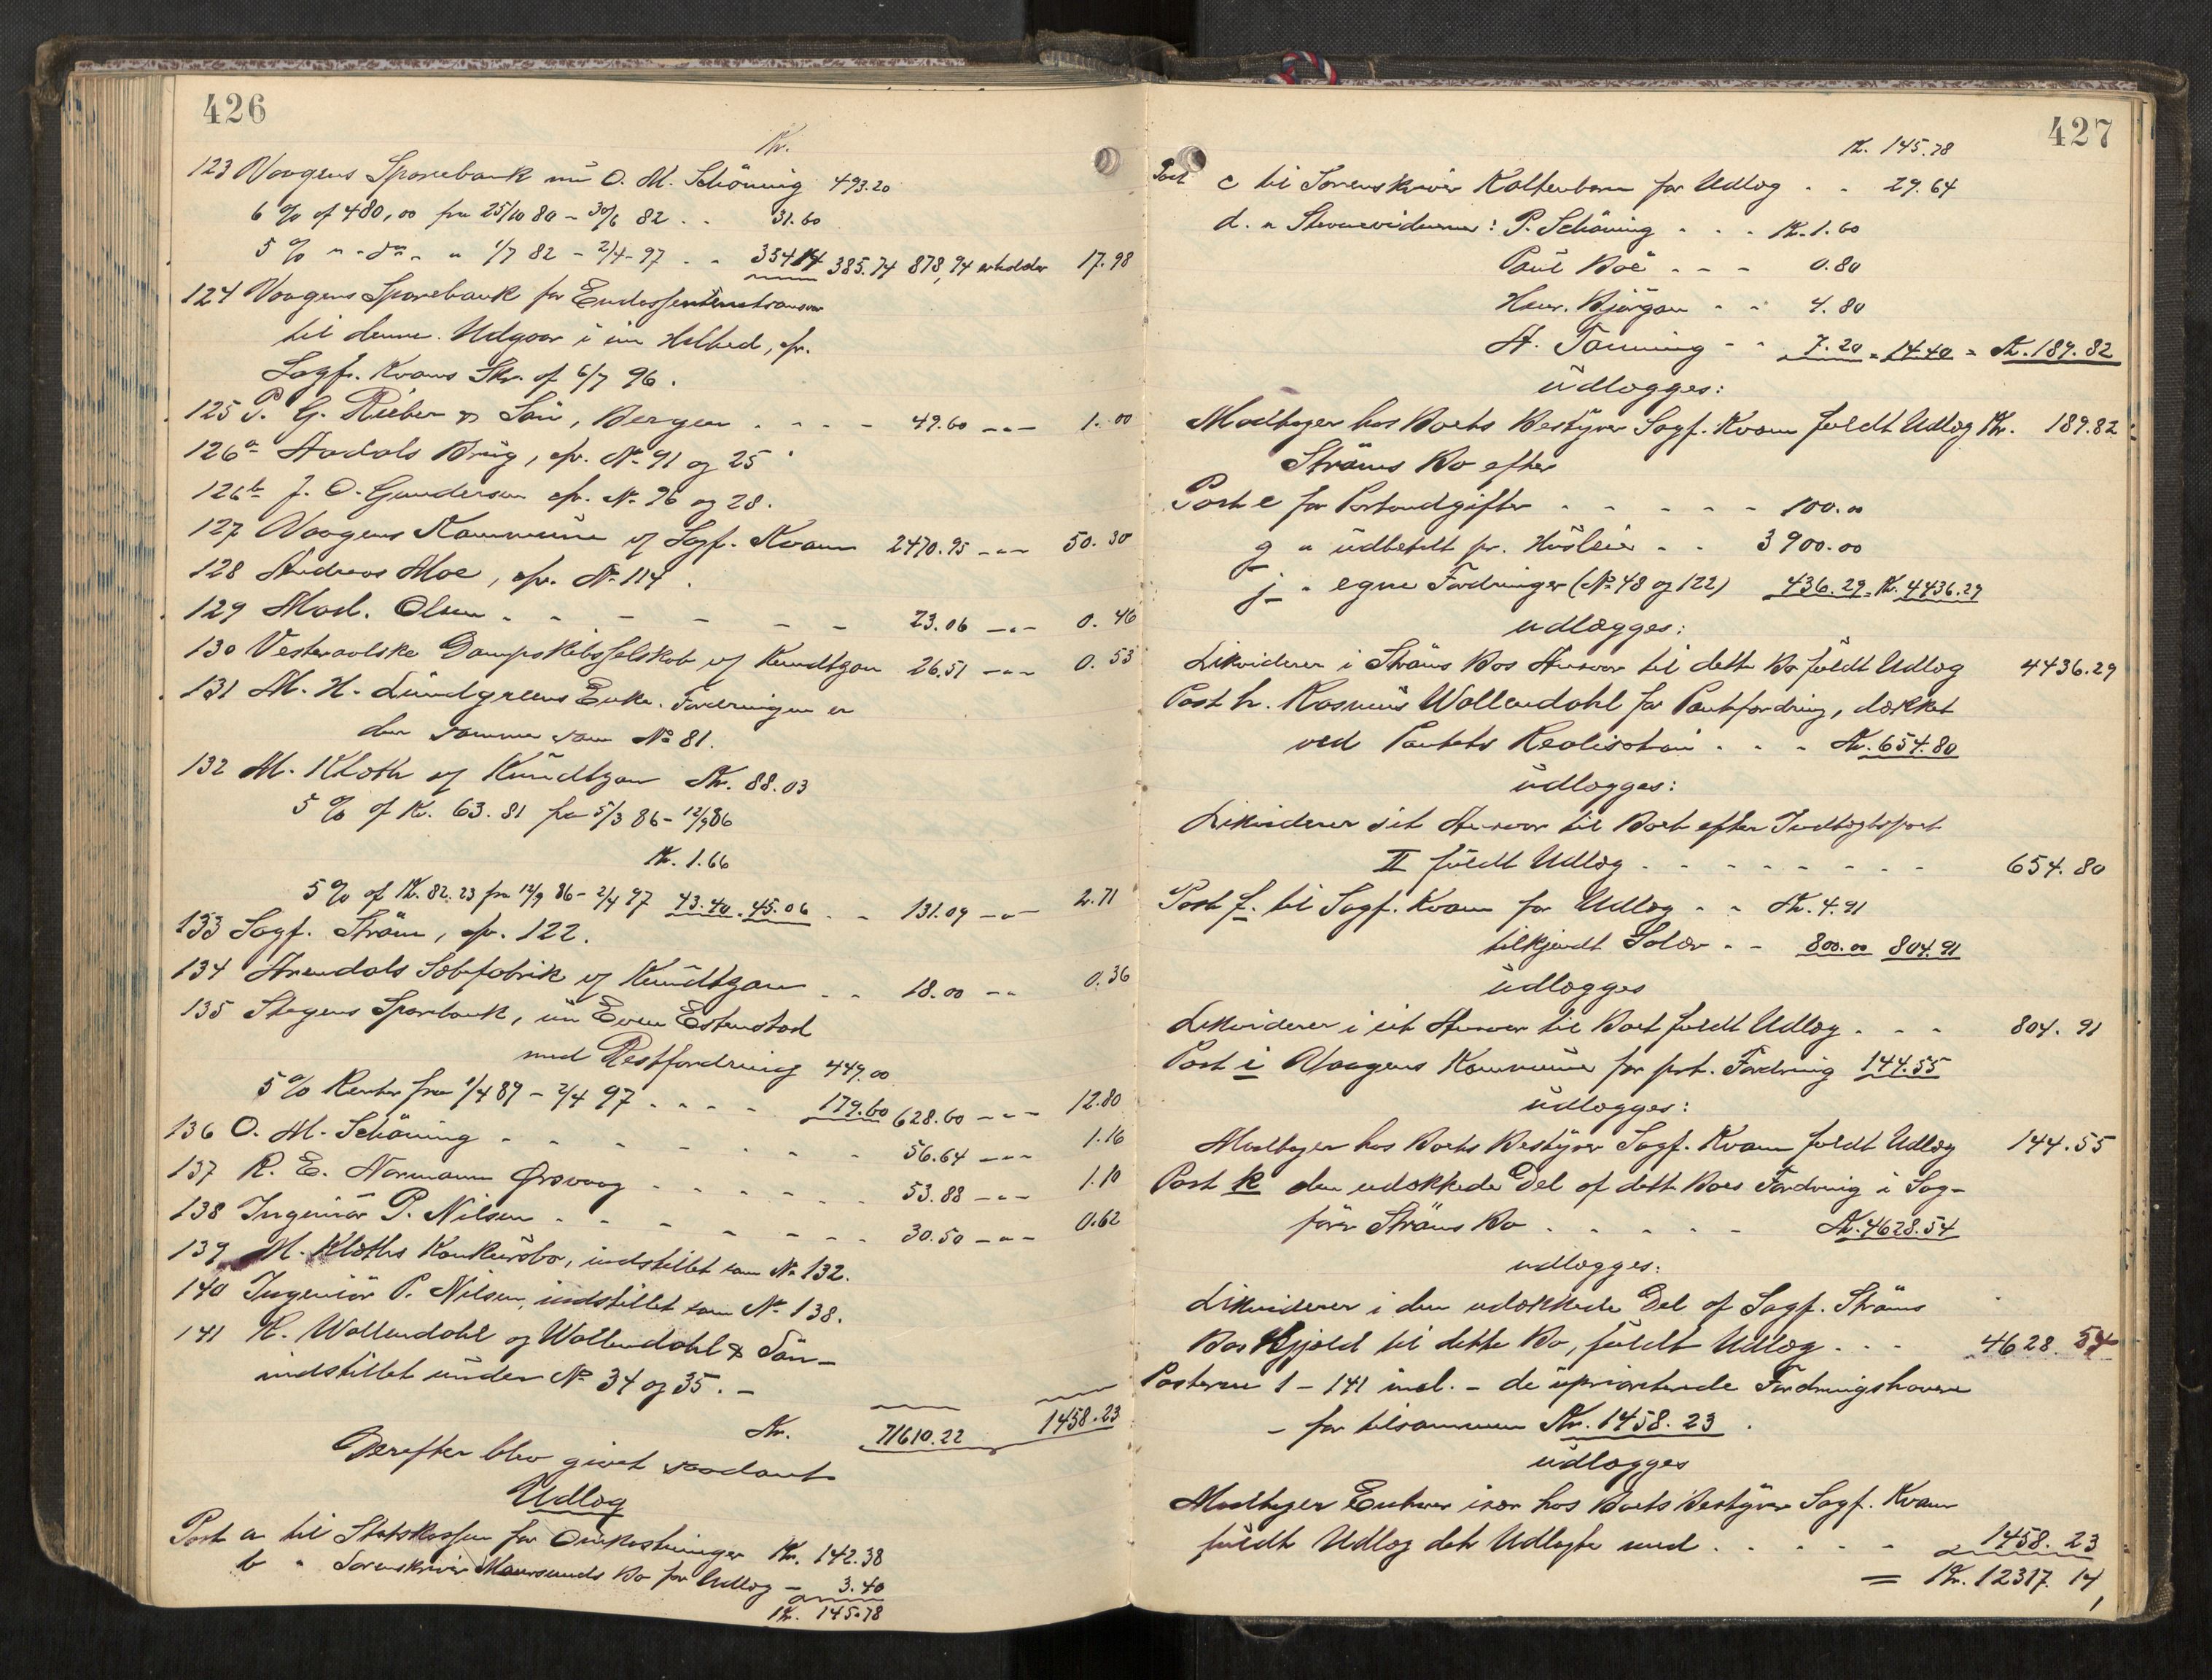 426
Kr.
123 Vaagens Sparebank nu O. M. Schöning 493.20
6 % af 480,00 fra 25/10 80 - 30/6 82 . . 31.60
5 % " - do - " 1/7 82 - 2/4 - 97 . . 354.14 385.74 878,94 erholder 17.98
124 Vaagens Sparebank for Endossementsansvar
til denne. Udgaar i sin Helhed, cfr.
Sagf. Kvams Skr. af 6/7 96.
125 P. G. Rieber & Sön, Bergen . . . . 49.60 -"- 1.00
126a Aadals Brug, cfr. No 91 og 25
126b J. O. Gundersen cfr. No 96 og 28.
127 Vaagens Kommune v/ Sagf. Kvam 2470.95 -"- 50.30
128 Andreas Moe, cfr. No 114.
129 Mad. Olsen . - - - - - - 23.06 -"- 0.46
130 Vesteraalske Dampskibsselskab v/ Kundtzon 26.51 -"- 0.53
131 M. H. Lundgreens Enke. Fordringen er
den samme som No 81.
132 M. Kloth v/ Kundtzon Kr. 88.03
5 % af Kr. 63.81 fra 5/3 86 - 12/9 86
Kr. 1.66
5 % af Kr. 82.23 fra 12/9 86 - 2/4 97 43.40 . 45.06 . . 131.09 -"- 2.71
133 Sagf. Ström, cfr. 122.
134 Arendals Tobfabrik v/ Kundtzon . . 18.00 -"- 0.36
135 Stegens Sparebank, nu Even Estenstad
med Restfordring 449.00
5 % Renter fra 1/4 89 - 2/4 97 . . . . 179.60 628.60 -"- 12.80
136 O. M. Schöning . - - - - - 56.64 -"- 1.16
137 R. E. Normann Örsvaag . . . . . . 53.88 -"- 1.10
138 Ingeniör P. Nilsen . - - - - - 30.50 -"- 0.62
139 M. Kloths Konkursbo, indstillet som No 132.
140 Ingeniör P. Nilsen, indstillet som No 138.
141 R. Wallendahl og Wallendahl & Sön -
indstillet under No 34 og 35. -
Kr. 71610.22 1458.23
Derefter blev givet saadant
Udlæg
Post a til Statskassen for Omkostninger Kr. 142.38
b " Sorenskriver Maursunds Bo for Udlæg - 3.40
Kr. 145.78
427
Kr. 145.78
Post c til Sorenskriver Kaltenborn for Udlæg . . 29.64
d. " Stevnevidnerne: P. Schöning . . . Kr. 1.60
Paul Boë . . . 0.80
Henr. Bjørgan . . 4.80
A. Tanning - - 7.20 = 14.40 = Kr. 189.82
udlægges:
Modtager hos Boets Bestyrer Sagf. Kvam fuldt Udlæg Kr. 189.82
Ströms Bo efter
Post e for Portoudgifter . . . . . 100.00
g " udbetalt pr. Husleie . . 3900.00
j - " egne Fordringer (No 48 og 122) 436.29 = Kr. 4436.29
udlægges:
Likviderer i Ströms Bos Ansvar til dette Bo fuldt Udlæg 4436.29
Post h. Rasmus Wallendahl for Pantfordring, dækket
ved Pantets Realisation . . . Kr. 654.80
udlægges:
Likviderer sit Ansvar til Boet efter Indtægtspost
II fuldt Udlæg . . . . . . . . 654.80
Post f. til Sagf. Kvam for Udlæg . . Kr. 4.91
tilkjendt Salær . . 800.00 804.91
udlægges
Likviderer i sit Ansvar til Boet fuldt Udlæg . . . 804.91
Post i Vaagens Kommune for prt. Fordring 144.55
udlægges:
Modtager hos Boets Bestyrer Sagf. Kvam fuldt Udlæg 144.55
Post k den udækkede Del af dette Boes Fordring i Sag-
förer Ströms Bo . . . . . . Kr. 4628.54
udlægges:
Likviderer i den udækkede Del af Sagf. Ströms
Bos Gjæld til dette Bo, fuldt Udlæg . . . 4628.54
Posterne 1 - 141 incl. - de uprioriterede Fordringshavere
- for tilsammen Kr. 1458.23 .
udlægges
Modtager Enhver især hos Boets Bestyrer Sagf. Kvam
fuldt Udlæg det Udlagte med . . . . . 1458.23
= Kr. 12317.14